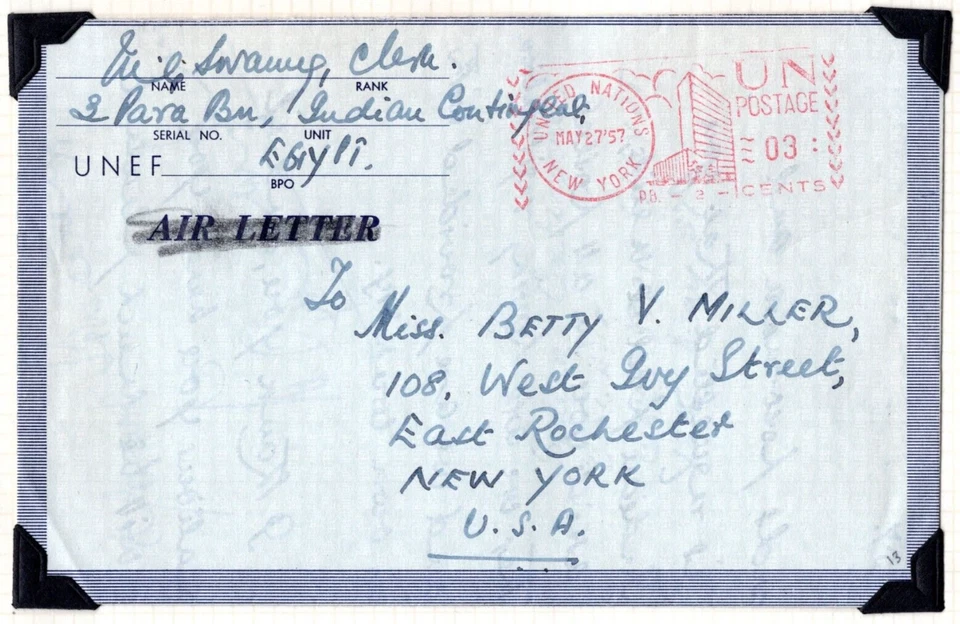 Swamy, Clerk.
NAME RANK
3 Para Bn, Indian Contingent,
SERIAL NO. UNIT
UNEF EGYPT.
BPO
AIR LETTER
UNITED NATIONS
MAY 27'57
NEW YORK
UN
POSTAGE
03
P.B. - 2 - CENTS
To
Miss. BETTY V. MILLER,
108, West Ivy Street,
East Rochester
NEW YORK
U.S.A.
13